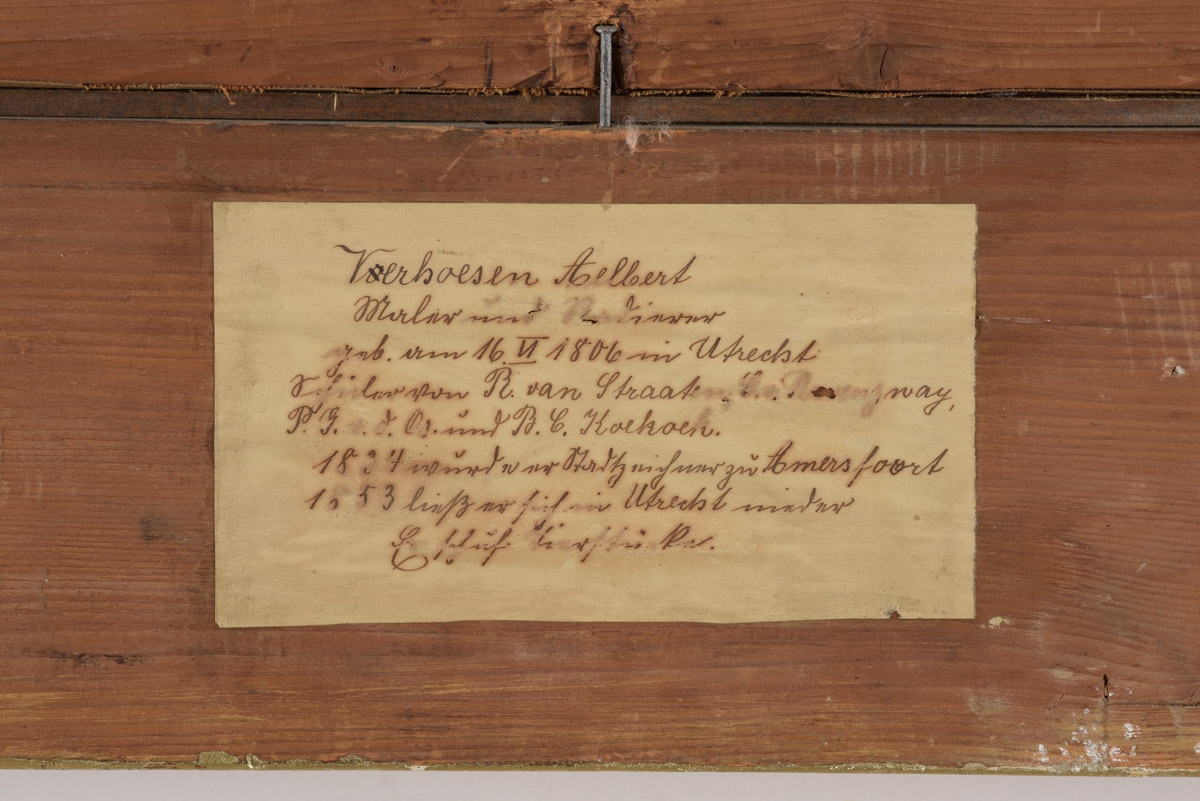 Verhoesen Aelbert
Maler und Radierer
geb. am 16. VI 1806 in Utrecht
Schüler von R. van Straaten, way,
P. G. v. d. Os. und B. C. Koekoek.
1834 wurde er Stadtzeichner zu Amersfoort
1853 ließ er sich in Utrecht nieder
Er schuf Tierstücke.